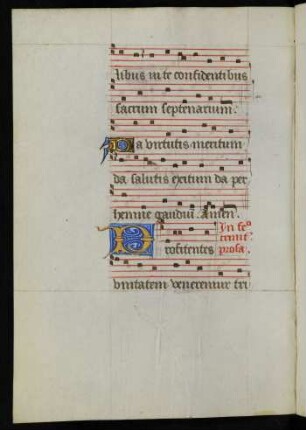 libus in te confidentibus
sacrum septenarium.
Da virtutis meritum
da salutis exitum da per
henne gaudium. Amen.
In fe°
trinit.
prosa.
Profitentes
unitatem veneremur tri